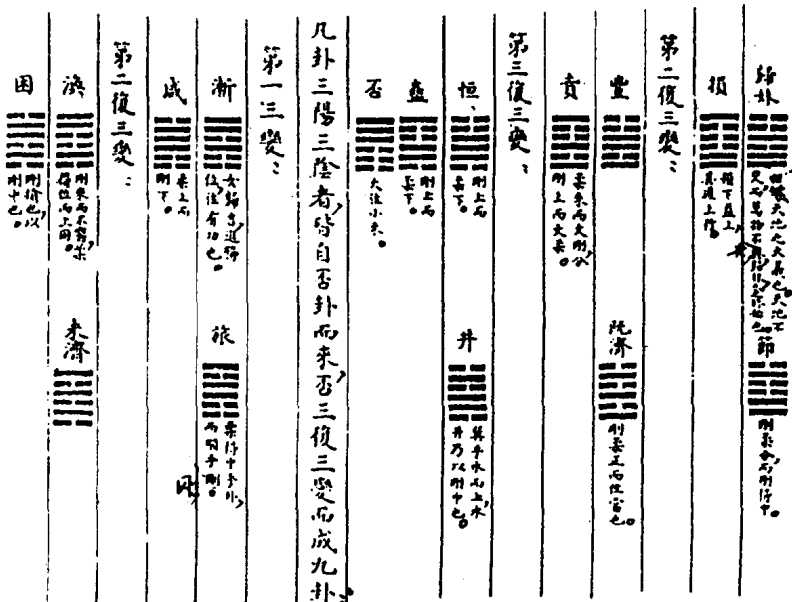 歸妹 歸妹天地之大義也天地不交而萬物不興歸妹人之終始也。 節 剛柔分而剛得中。
損 損下益上,其道上行。
第二復三變:
豐 既濟 剛柔正而位當也。
賁 柔來而文剛,分剛上而文柔。
第三復三變:
恒、 剛上而柔下。 井 巽乎水而上水,井乃以剛中也。
蠱 剛上而柔下。
否 大往小來。
凡卦三陽三陰者,皆自否卦而來,否三復三變而成九卦:
第一三變:
漸 女歸吉,進得位,往有功也。 旅 柔得中乎外,而順乎剛。
咸 柔上而剛下。
第二復三變:
渙 剛來而不窮,柔得位而上同。 未濟
困 剛揜也,以剛中也。